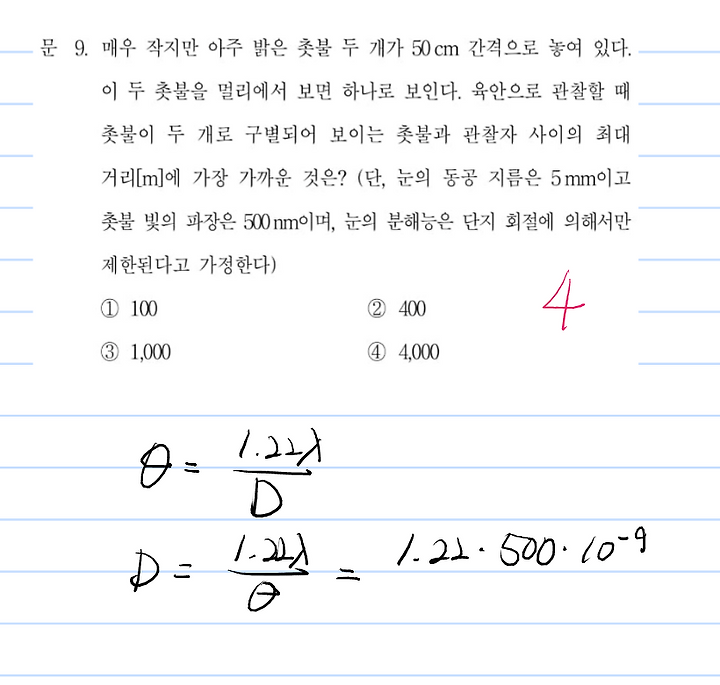 문 9. 매우 작지만 아주 밝은 촛불 두 개가 50 cm 간격으로 놓여 있다.
이 두 촛불을 멀리에서 보면 하나로 보인다. 육안으로 관찰할 때
촛불이 두 개로 구별되어 보이는 촛불과 관찰자 사이의 최대
거리[m]에 가장 가까운 것은? (단, 눈의 동공 지름은 5 mm이고
촛불 빛의 파장은 500 nm이며, 눈의 분해능은 단지 회절에 의해서만
제한된다고 가정한다)
① 100 ② 400
③ 1,000 ④ 4,000
4
θ = 1.22λ / D
D = 1.22λ / θ = 1.22 · 500 · 10⁻⁹